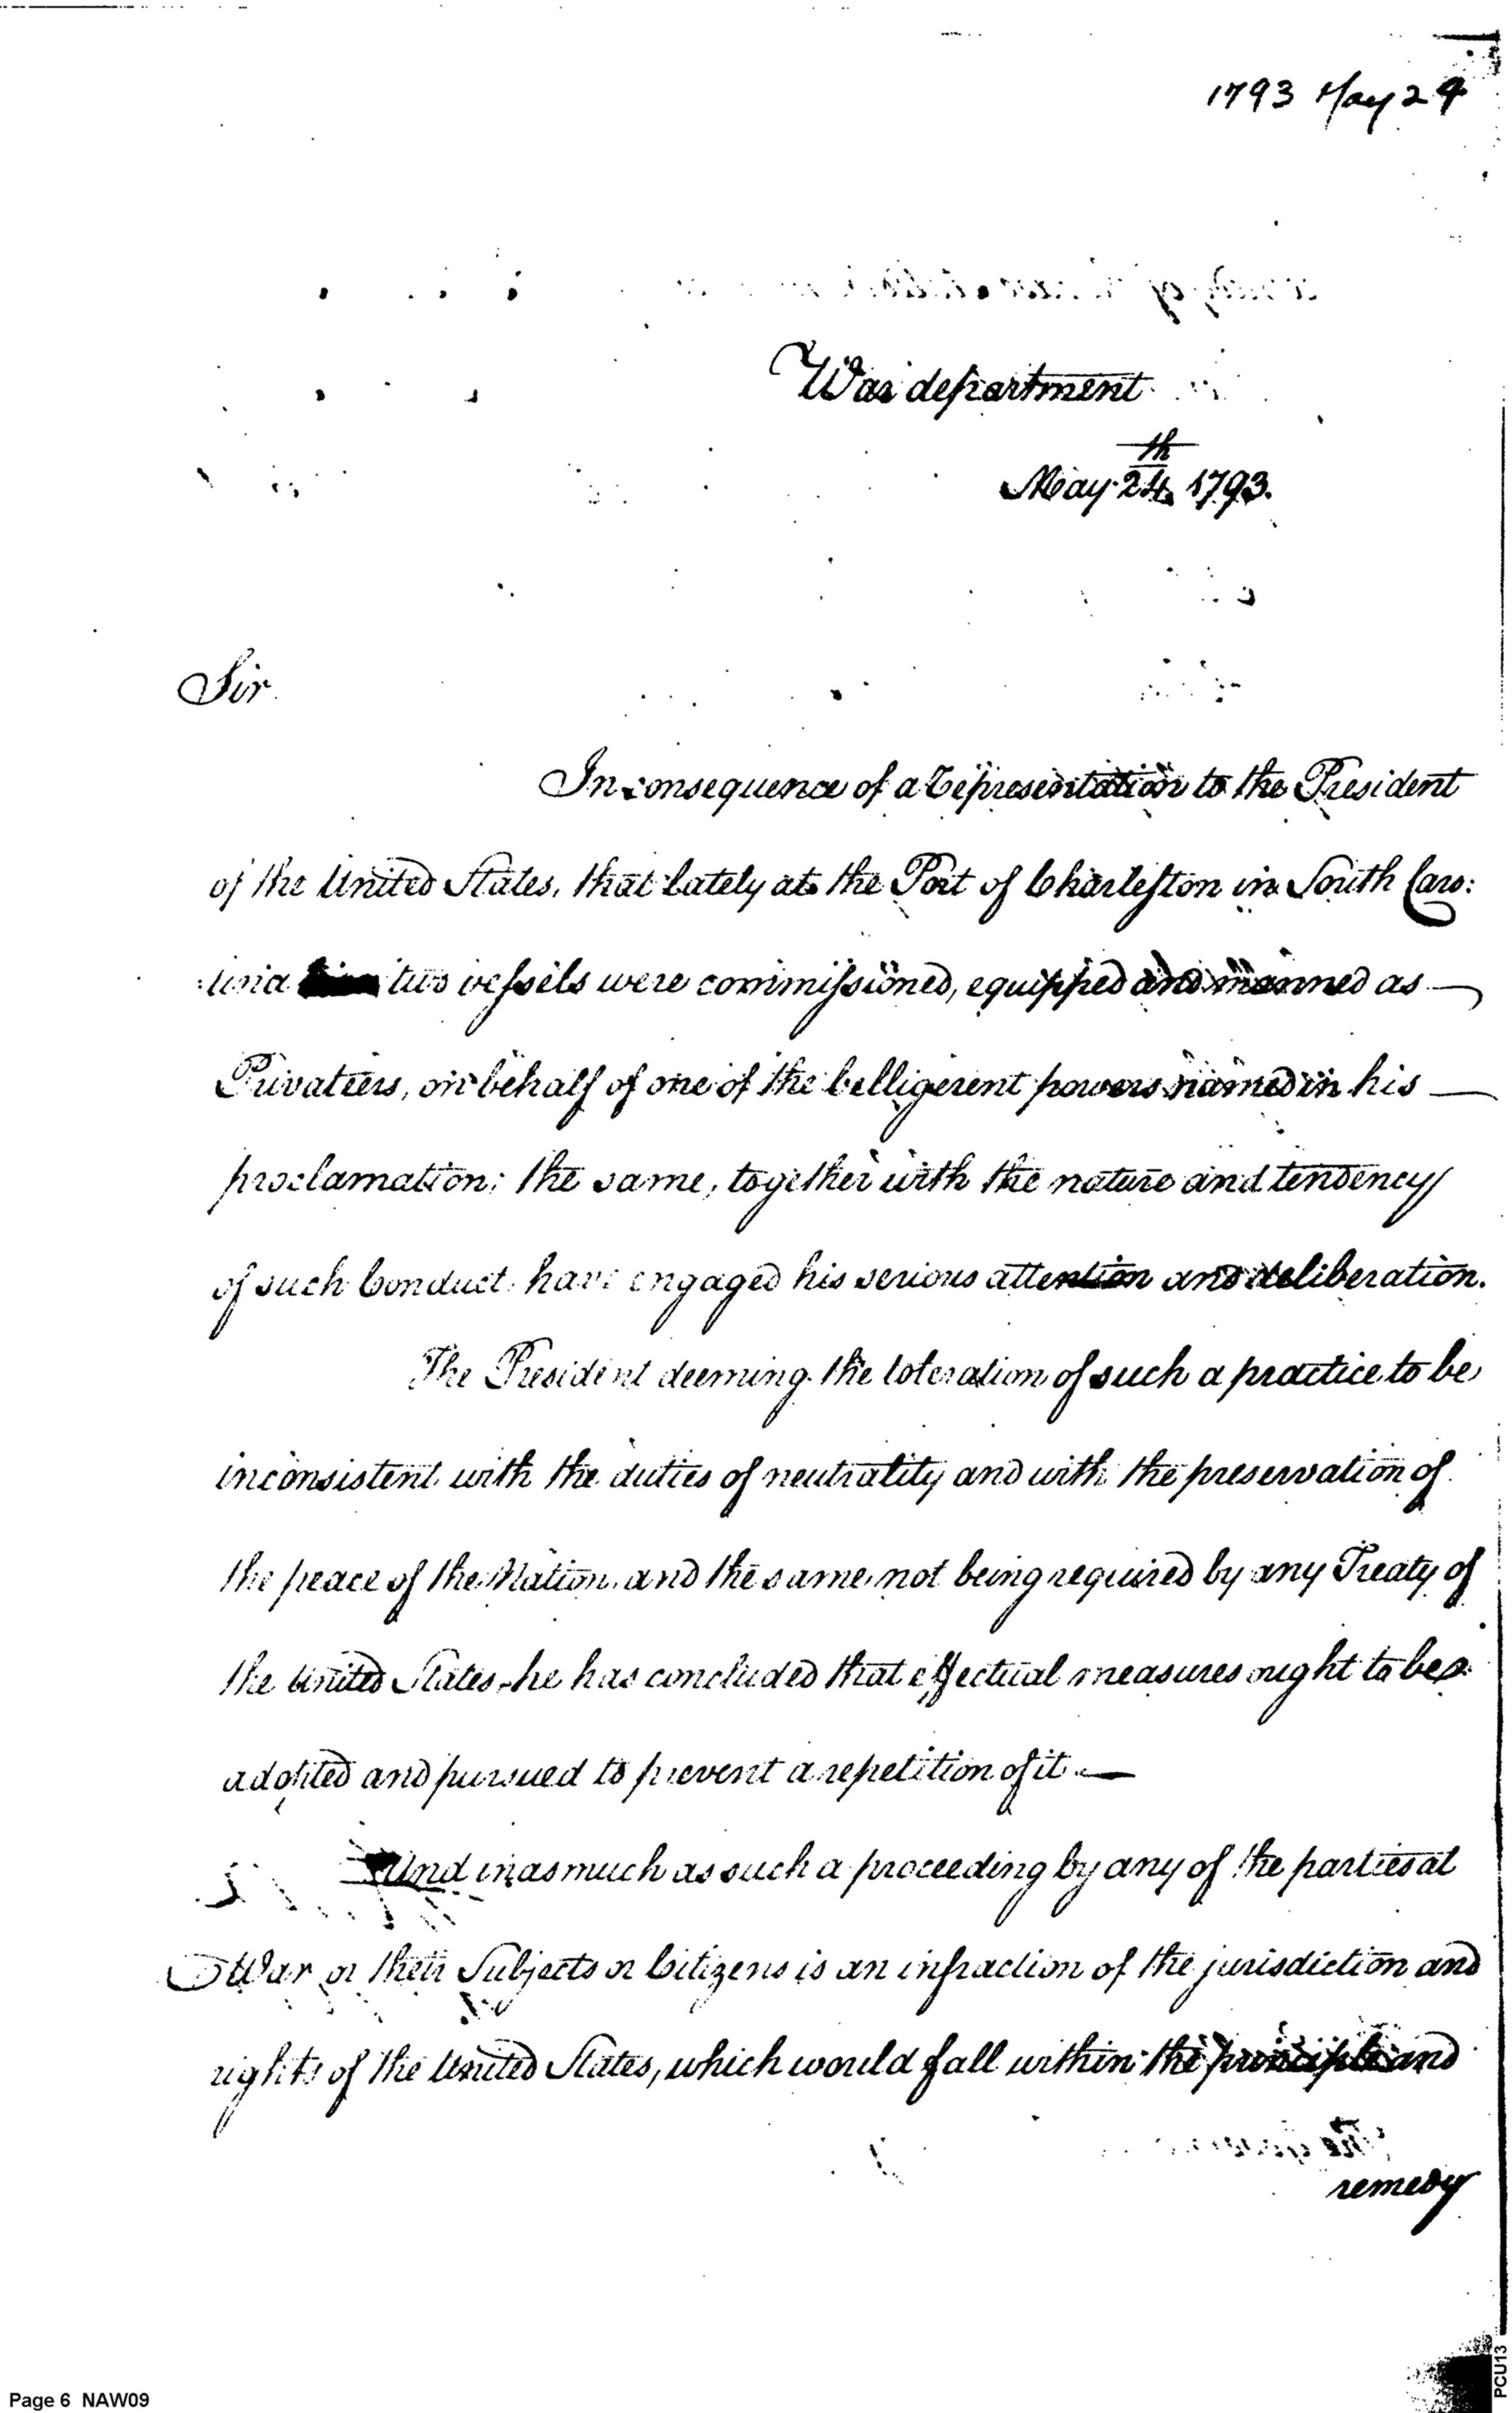 1793 May 24
War department
May 24th 1793.
Sir
In consequence of a representation to the President
of the United States, that lately at the Port of Charleston in South Caro:
:lina two vessels were commissioned, equipped and manned as —
Privateers, on behalf of one of the belligerent powers named in his —
proclamation; the same, together with the nature and tendency
of such Conduct have engaged his serious attention and deliberation.
The President deeming the toleration of such a practice to be
inconsistent with the duties of neutrality and with the preservation of
the peace of the Nation, and the same not being required by any Treaty of
the United States, he has concluded that effectual measures ought to be
adopted and pursued to prevent a repetition of it —
And inasmuch as such a proceeding by any of the parties at
War or their Subjects or Citizens is an infraction of the jurisdiction and
rights of the United States, which would fall within the principle and
remedy
Page 6 NAW09
PCU13